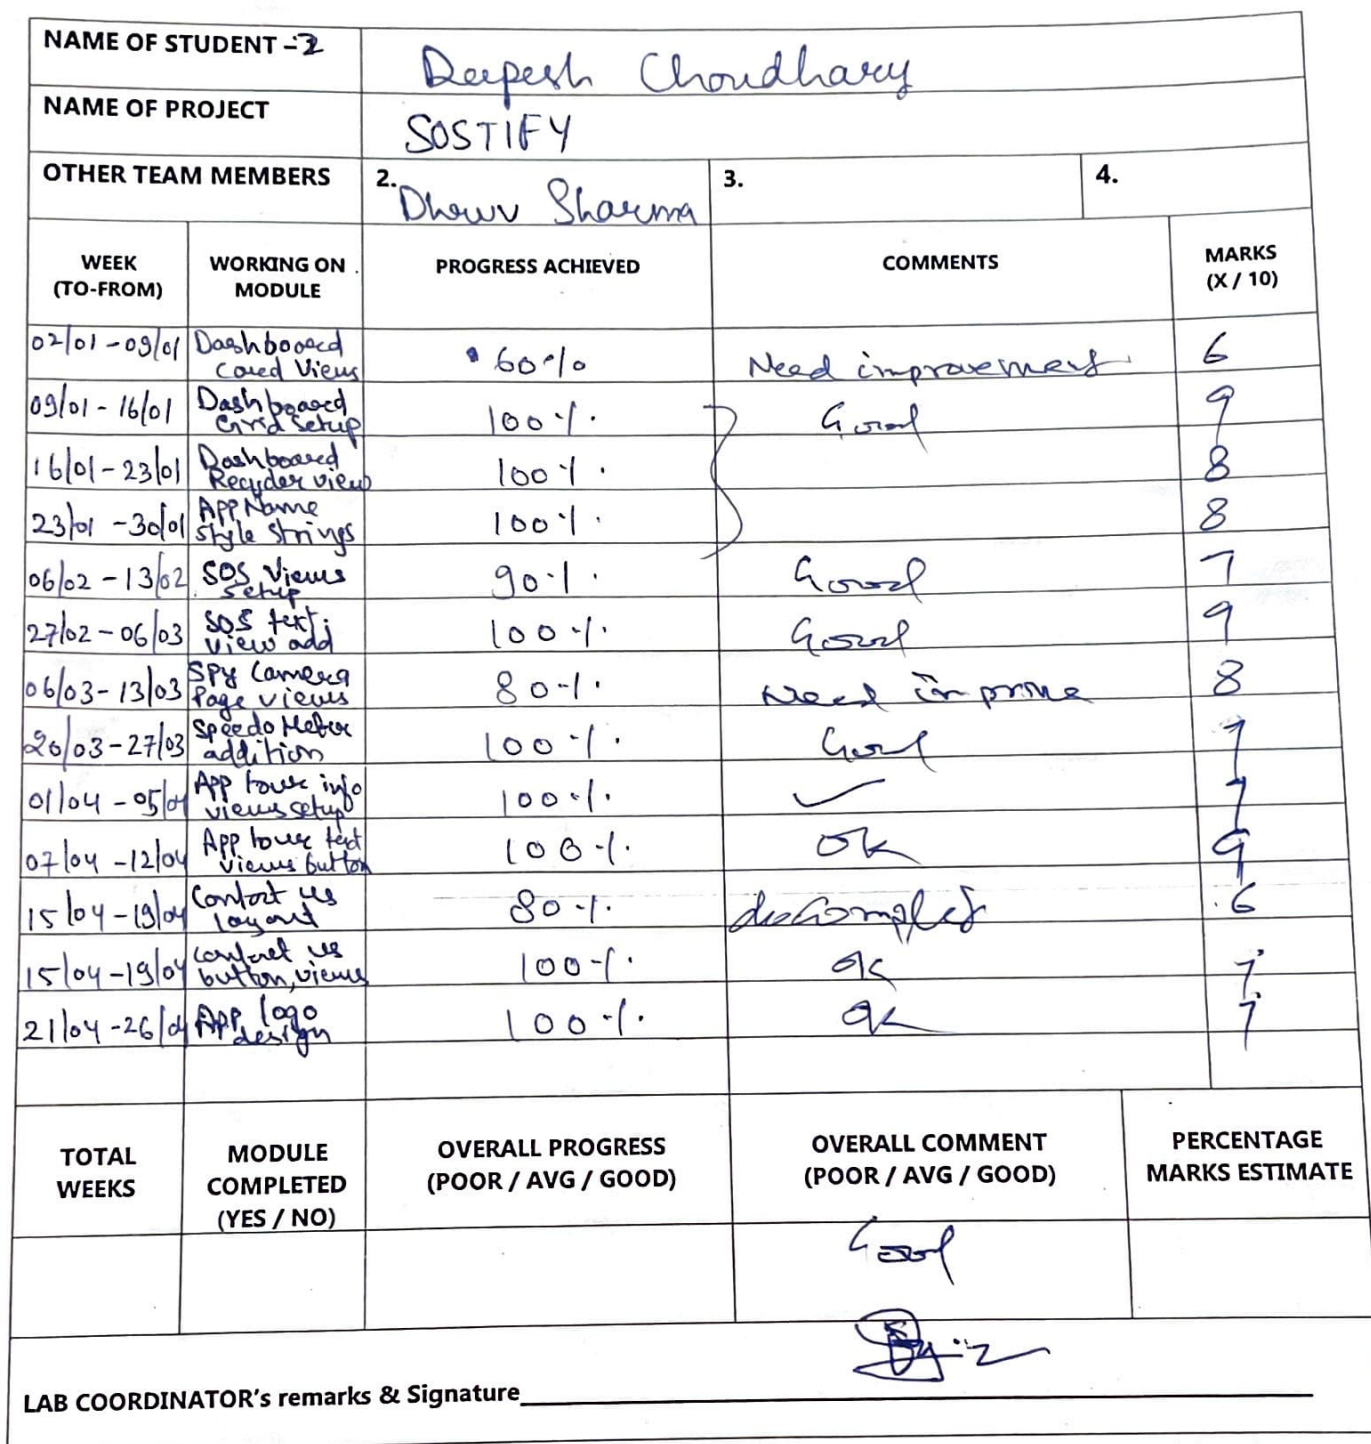 NAME OF STUDENT -2 Deepesh Choudhary
NAME OF PROJECT SOSTIFY
OTHER TEAM MEMBERS 2. Dhruv Sharma 3. 4.
WEEK (TO-FROM) WORKING ON MODULE PROGRESS ACHIEVED COMMENTS MARKS (X / 10)
02/01-09/01 Dashboard Card Views 60% Need improvement 6
09/01-16/01 Dashboard Grid setup 100% Good 9
16/01-23/01 Dashboard Recycler view 100% 8
23/01-30/01 App Name style strings 100% 8
06/02-13/02 SOS Views setup 90% Good 7
27/02-06/03 SOS text view add 100% Good 9
06/03-13/03 SPY Camera Page views 80% Need 8
20/03-27/03 Speedo Meter addition 100% Good 7
01/04-05/04 App tour info views setup 100% ✓ 7
07/04-12/04 App tour text views button 100% Ok 9
15/04-19/04 Contact us layout 80% 6
15/04-19/04 contact us button, views 100% Ok 7
21/04-26/04 App logo design 100% Ok 7
TOTAL WEEKS MODULE COMPLETED (YES / NO) OVERALL PROGRESS (POOR / AVG / GOOD) OVERALL COMMENT (POOR / AVG / GOOD) PERCENTAGE MARKS ESTIMATE
Good
LAB COORDINATOR's remarks & Signature